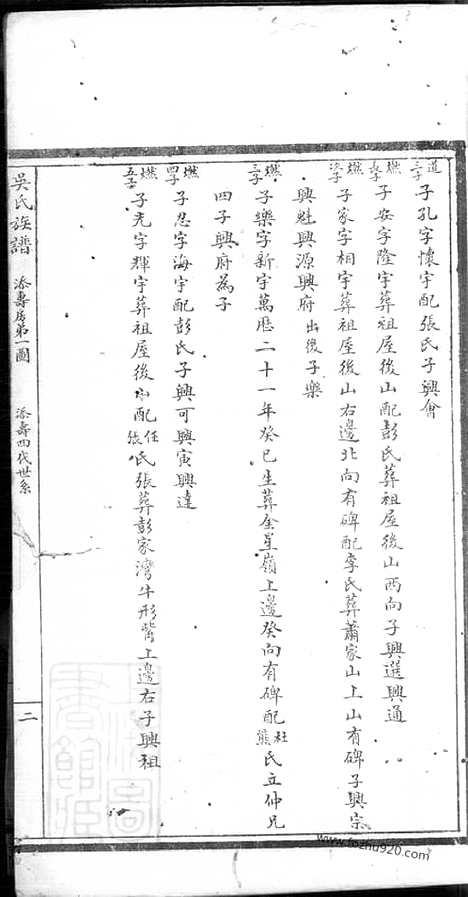 道三子 子孔字懷宇配張氏子興會
燃長子 子安字隆宇葬祖屋後山配彭氏葬祖屋後山西向子興選興通
燃次子 子家字相宇葬祖屋後山右邊北向有碑配李氏葬蕭家山上山有碑子興宗
興魁興源興府出後子樂
燃三子 子樂字新宇萬厯二十一年癸巳生葬金星嶺上邊癸向有碑配杜熊氏立仲兄
四子興府為子
燃四子 子忍字海宇配彭氏子興可興寅興達
燃五子 子充字輝宇葬祖屋後山配任張氏張葬彭家灣牛形背上邊右子興祖
吳氏族譜 添壽房第一圖 添壽四代世系 二
www.fozhu920.com